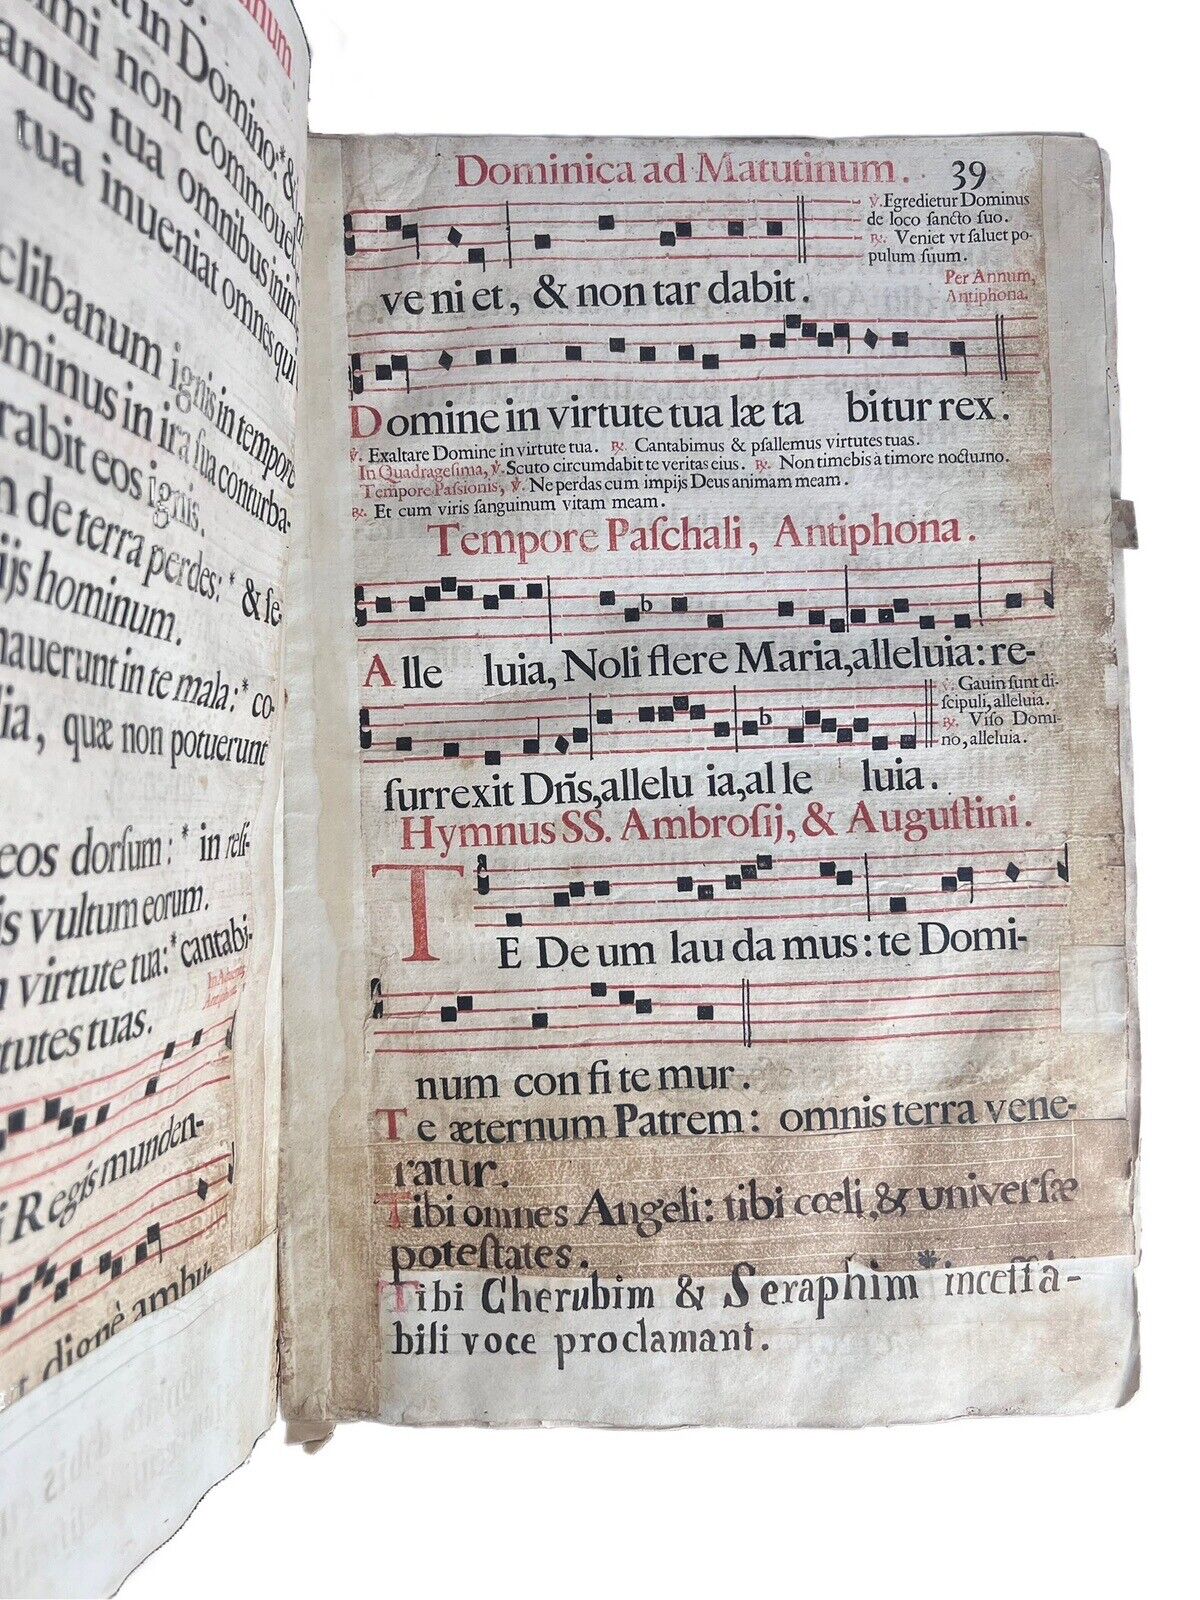 in Domino:* &
non commoue
tua omnibus in
tua inueniat omnes qui
clibanum ignis in tempore
in ira sua conturba-
eos ignis.
de terra perdes: * & se-
hominum.
in te mala: * co-
quæ non potuerunt
eos dorsum: * in reli-
vultum eorum.
virtute tua: * cantabi-
tuas.
Regis munden-
dignè ambu-
Dominica ad Matutinum. 39
℣. Egredietur Dominus
de loco sancto suo.
℟. Veniet vt saluet po-
pulum suum.
ve ni et, & non tar dabit.
Per Annum,
Antiphona.
Domine in virtute tua læ ta bitur rex.
℣. Exaltare Domine in virtute tua. ℟. Cantabimus & psallemus virtutes tuas.
In Quadragesima, ℣. Scuto circumdabit te veritas eius. ℟. Non timebis a timore nocturno.
Tempore Passionis, ℣. Ne perdas cum impijs Deus animam meam.
℟. Et cum viris sanguinum vitam meam.
Tempore Paschali, Antiphona.
b
Alle luia, Noli flere Maria, alleluia: re-
℣. Gauin sunt di-
scipuli, alleluia.
℟. Viso Domi-
no, alleluia.
b
surrexit Dn̄s, allelu ia, al le luia.
Hymnus SS. Ambrosij, & Augustini.
TE De um lau da mus: te Domi-
num con fi te mur.
Te æternum Patrem: omnis terra vene-
ratur.
Tibi omnes Angeli: tibi cœli, & universæ
potestates.
Tibi Cherubim & Seraphim* incessa-
bili voce proclamant.